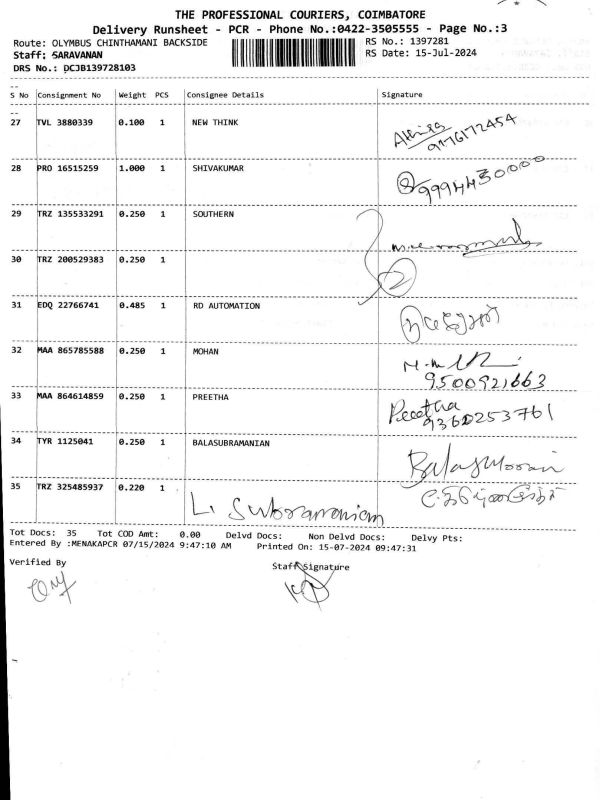 THE PROFESSIONAL COURIERS, COIMBATORE
Delivery Runsheet - PCR - Phone No.:0422-3505555 - Page No.:3
Route: OLYMBUS CHINTHAMANI BACKSIDE RS No.: 1397281
Staff: SARAVANAN RS Date: 15-Jul-2024
DRS No.: DCJB139728103
--
S No Consignment No Weight PCS Consignee Details Signature
--
27 TVL 3880339 0.100 1 NEW THINK
9176172454
28 PRO 16515259 1.000 1 SHIVAKUMAR
9994430000
29 TRZ 135533291 0.250 1 SOUTHERN
30 TRZ 200529383 0.250 1
31 EDQ 22766741 0.485 1 RD AUTOMATION
32 MAA 865785588 0.250 1 MOHAN
9500921663
33 MAA 864614859 0.250 1 PREETHA Preetha
9360253761
34 TYR 1125041 0.250 1 BALASUBRAMANIAN
35 TRZ 325485937 0.220 1
L. Subramaniam
Tot Docs: 35 Tot COD Amt: 0.00 Delvd Docs: Non Delvd Docs: Delvy Pts:
Entered By :MENAKAPCR 07/15/2024 9:47:10 AM Printed On: 15-07-2024 09:47:31
Verified By Staff Signature